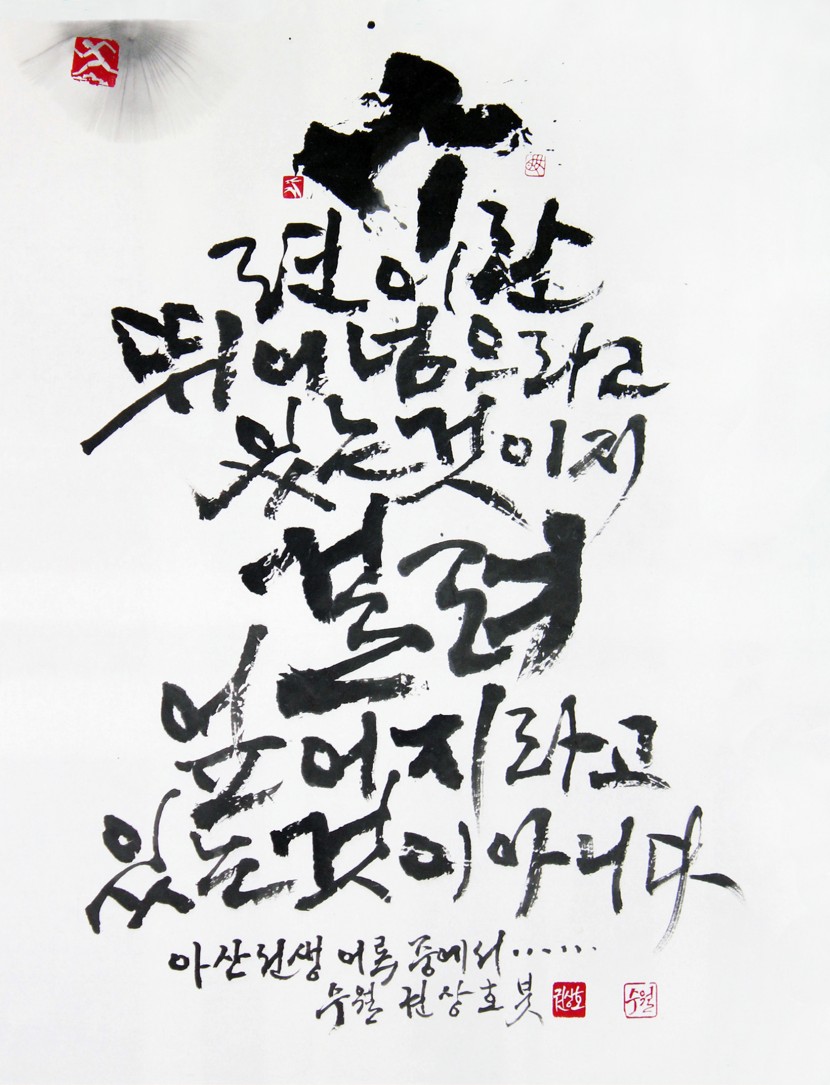 시
련이란
뛰어넘으라고
있는것이지
걸려
엎어지라고
있는것이아니다
아산선생 어록 중에서......
수월 권상호 붓 권상호 수월